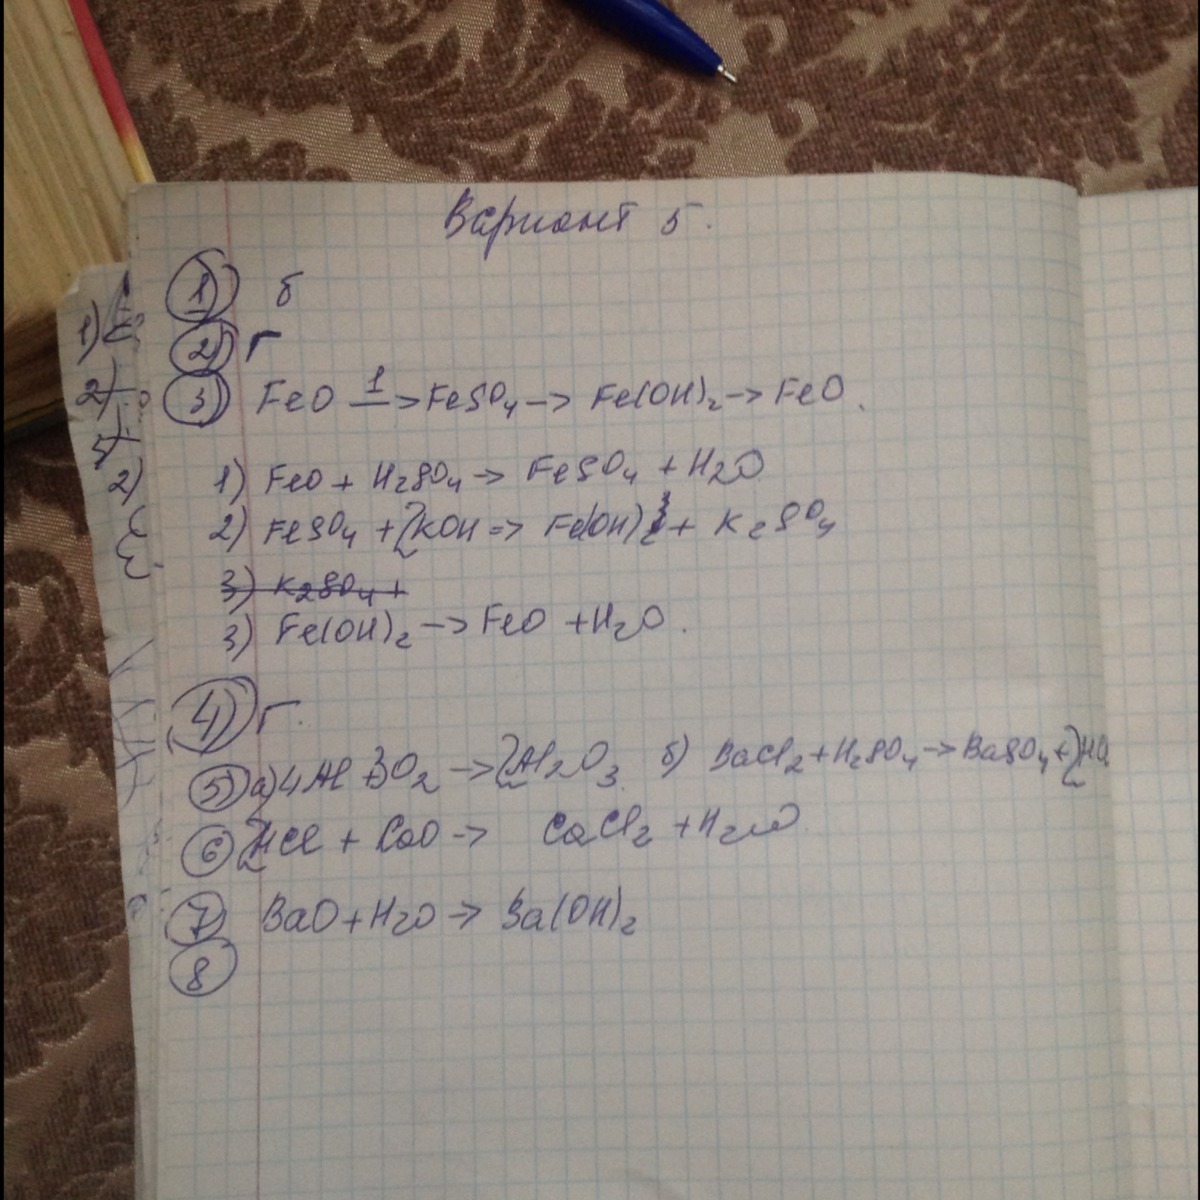 Вариант 5.
1) б
2) г
3) FeO 1→ FeSO4 → Fe(OH)2 → FeO.
1) FeO + H2SO4 → FeSO4 + H2O
2) FeSO4 + 2KOH => Fe(OH)2 + K2SO4
3) K2SO4 +
3) Fe(OH)2 → FeO + H2O.
4) г.
5) а) 4Al + 3O2 → 2Al2O3 б) BaCl2 + H2SO4 → BaSO4 + 2HCl
6) 2HCl + CaO → CaCl2 + H2O
7) BaO + H2O → Ba(OH)2
8
1)
2)
2)